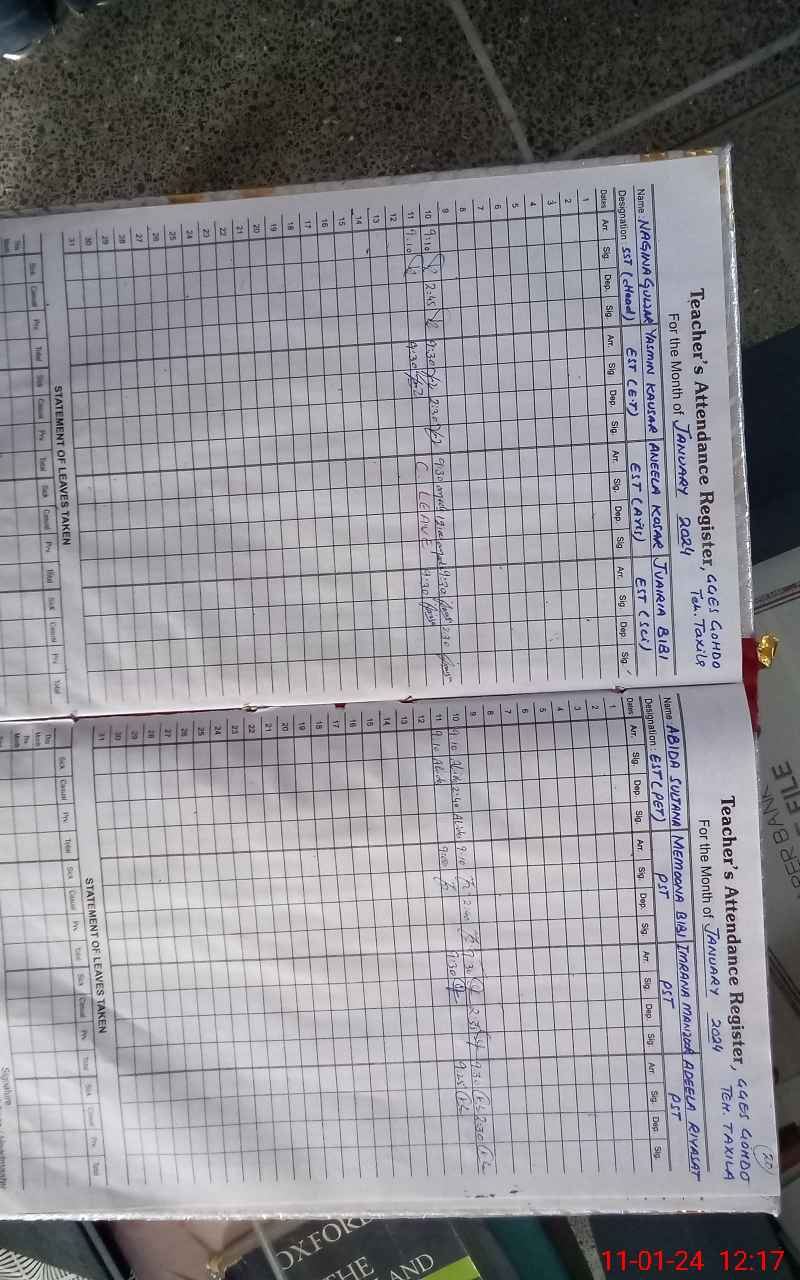 Teacher's Attendance Register, GGES GOHDO
For the Month of JANUARY 2024 Teh. Taxila
Name: NAGINA GULZAR YASMIN KAUSAR ANEELA KOSAR JUAIRIA BIBI
Designation: SST (Head) EST (E.T) EST (Arts) EST (SCI)
Dates Arr. Sig. Dep. Sig. Arr. Sig. Dep. Sig. Arr. Sig. Dep. Sig. Arr. Sig. Dep. Sig.
1
2
3
4
5
6
7
8
9
10 9:10 2:45 9:30 2:30 9:30 9:30 2:30
11 9:10 9:30 C LEAVE 9:30
12
13
14
15
16
17
18
19
20
21
22
23
24
25
26
27
28
29
30
31
STATEMENT OF LEAVES TAKEN
Sick Casual Prv. Total Sick Casual Prv. Total Sick Casual Prv. Total Sick Casual Prv. Total
20
Teacher's Attendance Register, GGES GOHDO
For the Month of JANUARY 2024 TEH. TAXILA
Name: ABIDA SULTANA MEMOONA BIBI IMRANA MANZOOR ADEELA RIYASAT
Designation: EST (PET) PST PST PST
Dates Arr. Sig. Dep. Sig. Arr. Sig. Dep. Sig. Arr. Sig. Dep. Sig. Arr. Sig. Dep. Sig.
1
2
3
4
5
6
7
8
9
10 9:10 Abida 2:40 Abida 9:10 9:30 9:30 2:30
11 9:10 Abida 9:30 9:25
12
13
14
15
16
17
18
19
20
21
22
23
24
25
26
27
28
29
30
31
STATEMENT OF LEAVES TAKEN
Sick Casual Prv. Total Sick Casual Prv. Total Sick Casual Prv. Total Sick Casual Prv. Total
Signature
FILE
OXFORD
THE
AND
11-01-24 12:17